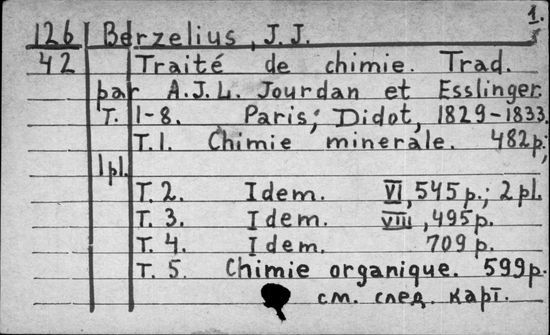 1.
126 Berzelius, J.J.
42 Traité de chimie. Trad.
par A.J.L. Jourdan et Esslinger.
T. 1-8. Paris; Didot, 1829-1833.
T.1. Chimie minerale. 482p.;
1pl.
T. 2. Idem. VI, 545p.; 2pl.
T. 3. Idem. VIII, 495p.
T. 4. Idem. 709p.
T. 5. Chimie organique. 599p.
см. след. карт.